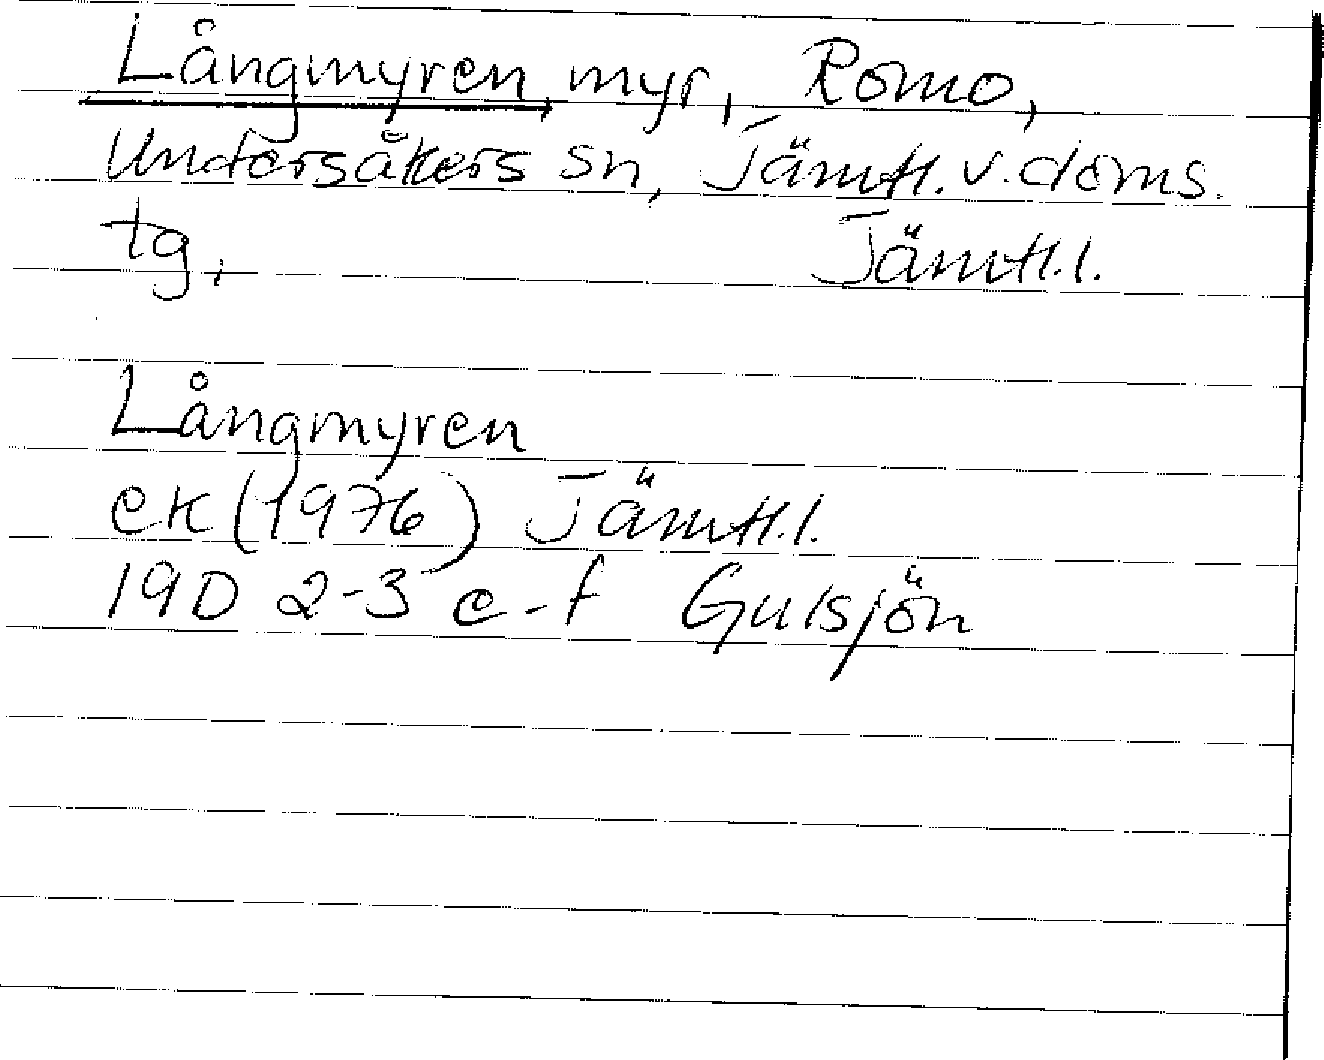 Långmyren, myr, Romo,
Undersåkers sn, Jämtl. v. doms.
tg, Jämtl. l.
Långmyren
ek (1976) Jämtl. l.
19D 2-3 e-f Gulsjön